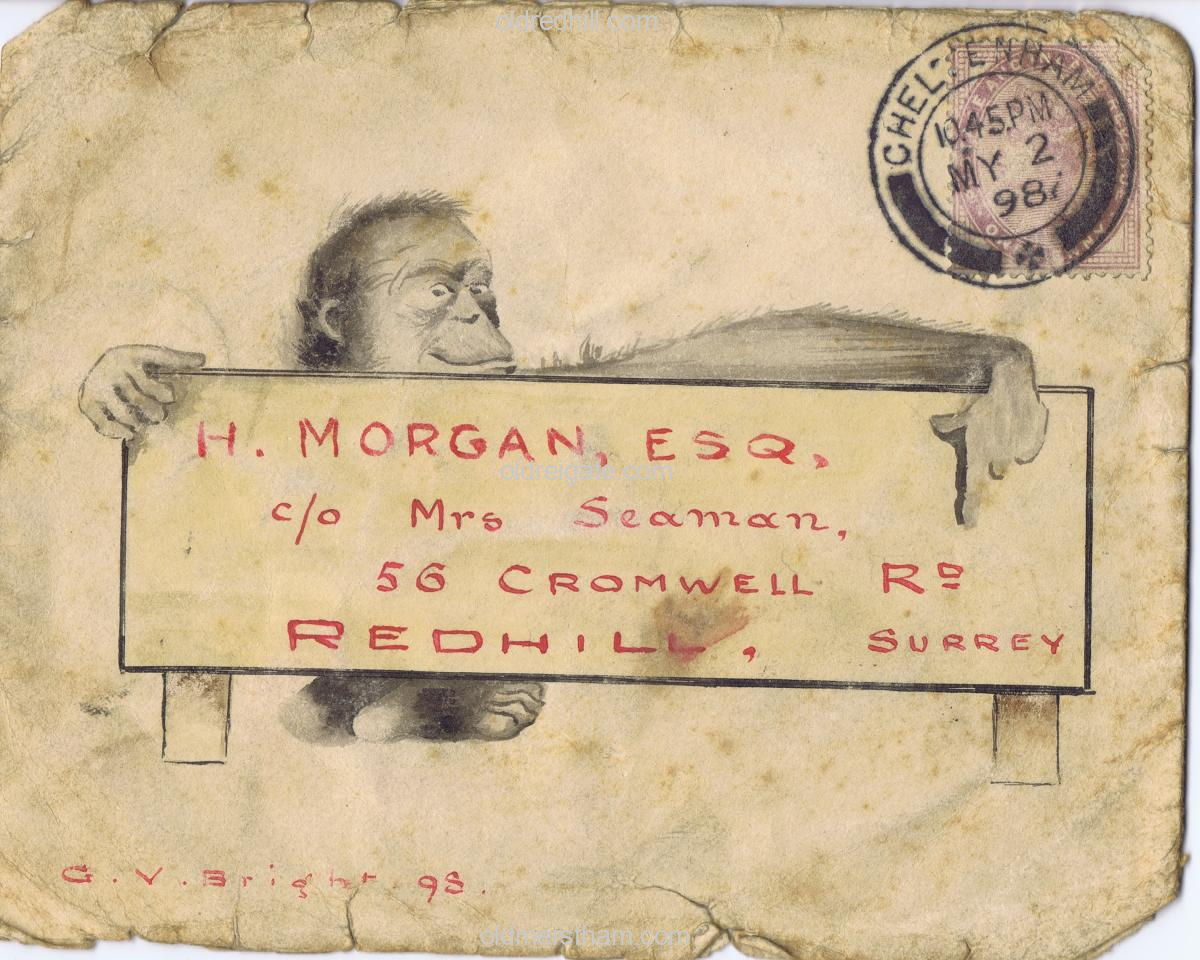 oldredhill.com
CHELTENHAM
10.45PM
MY 2
98
H. MORGAN, ESQ,
oldreigate.com
c/o Mrs Seaman,
56 CROMWELL RD
REDHILL, SURREY
G.V.Bright 98.
oldmerstham.com